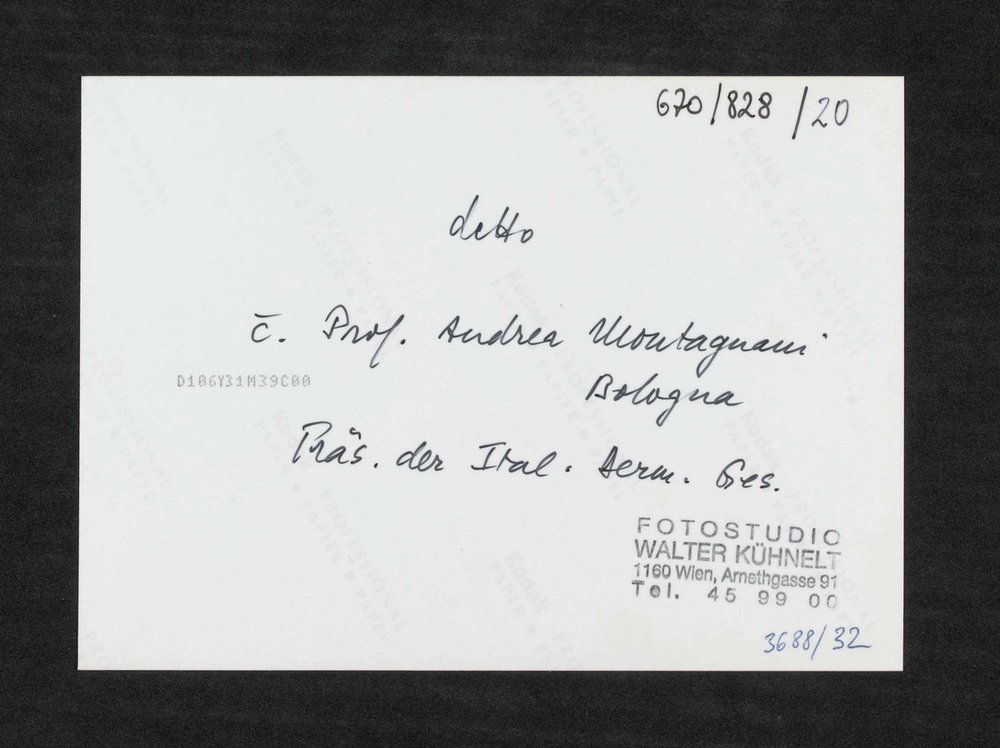 670/828 /20
detto
c̄. Prof. Andrea Montagnani
Bologna
D106Y31M39C00
Präs. der Ital. Derm. Ges.
FOTOSTUDIO
WALTER KÜHNELT
1160 Wien, Arnethgasse 91
Tel. 45 99 00
3688/32
Kodak
PROFESSIONAL
PAPIER